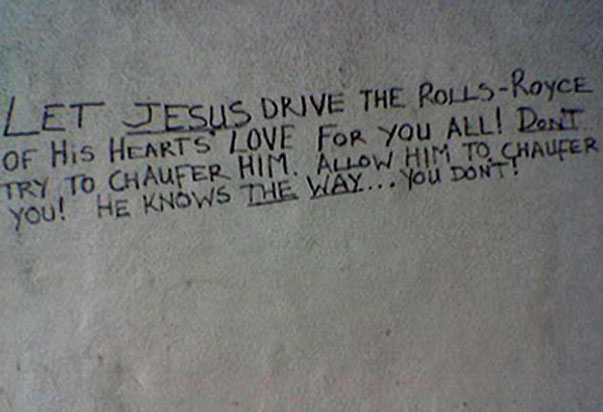 LET JESUS DRIVE THE ROLLS-ROYCE
OF HIS HEARTS' LOVE FOR YOU ALL! DON'T
TRY TO CHAUFER HIM. ALLOW HIM TO CHAUFER
YOU! HE KNOWS THE WAY... YOU DON'T!